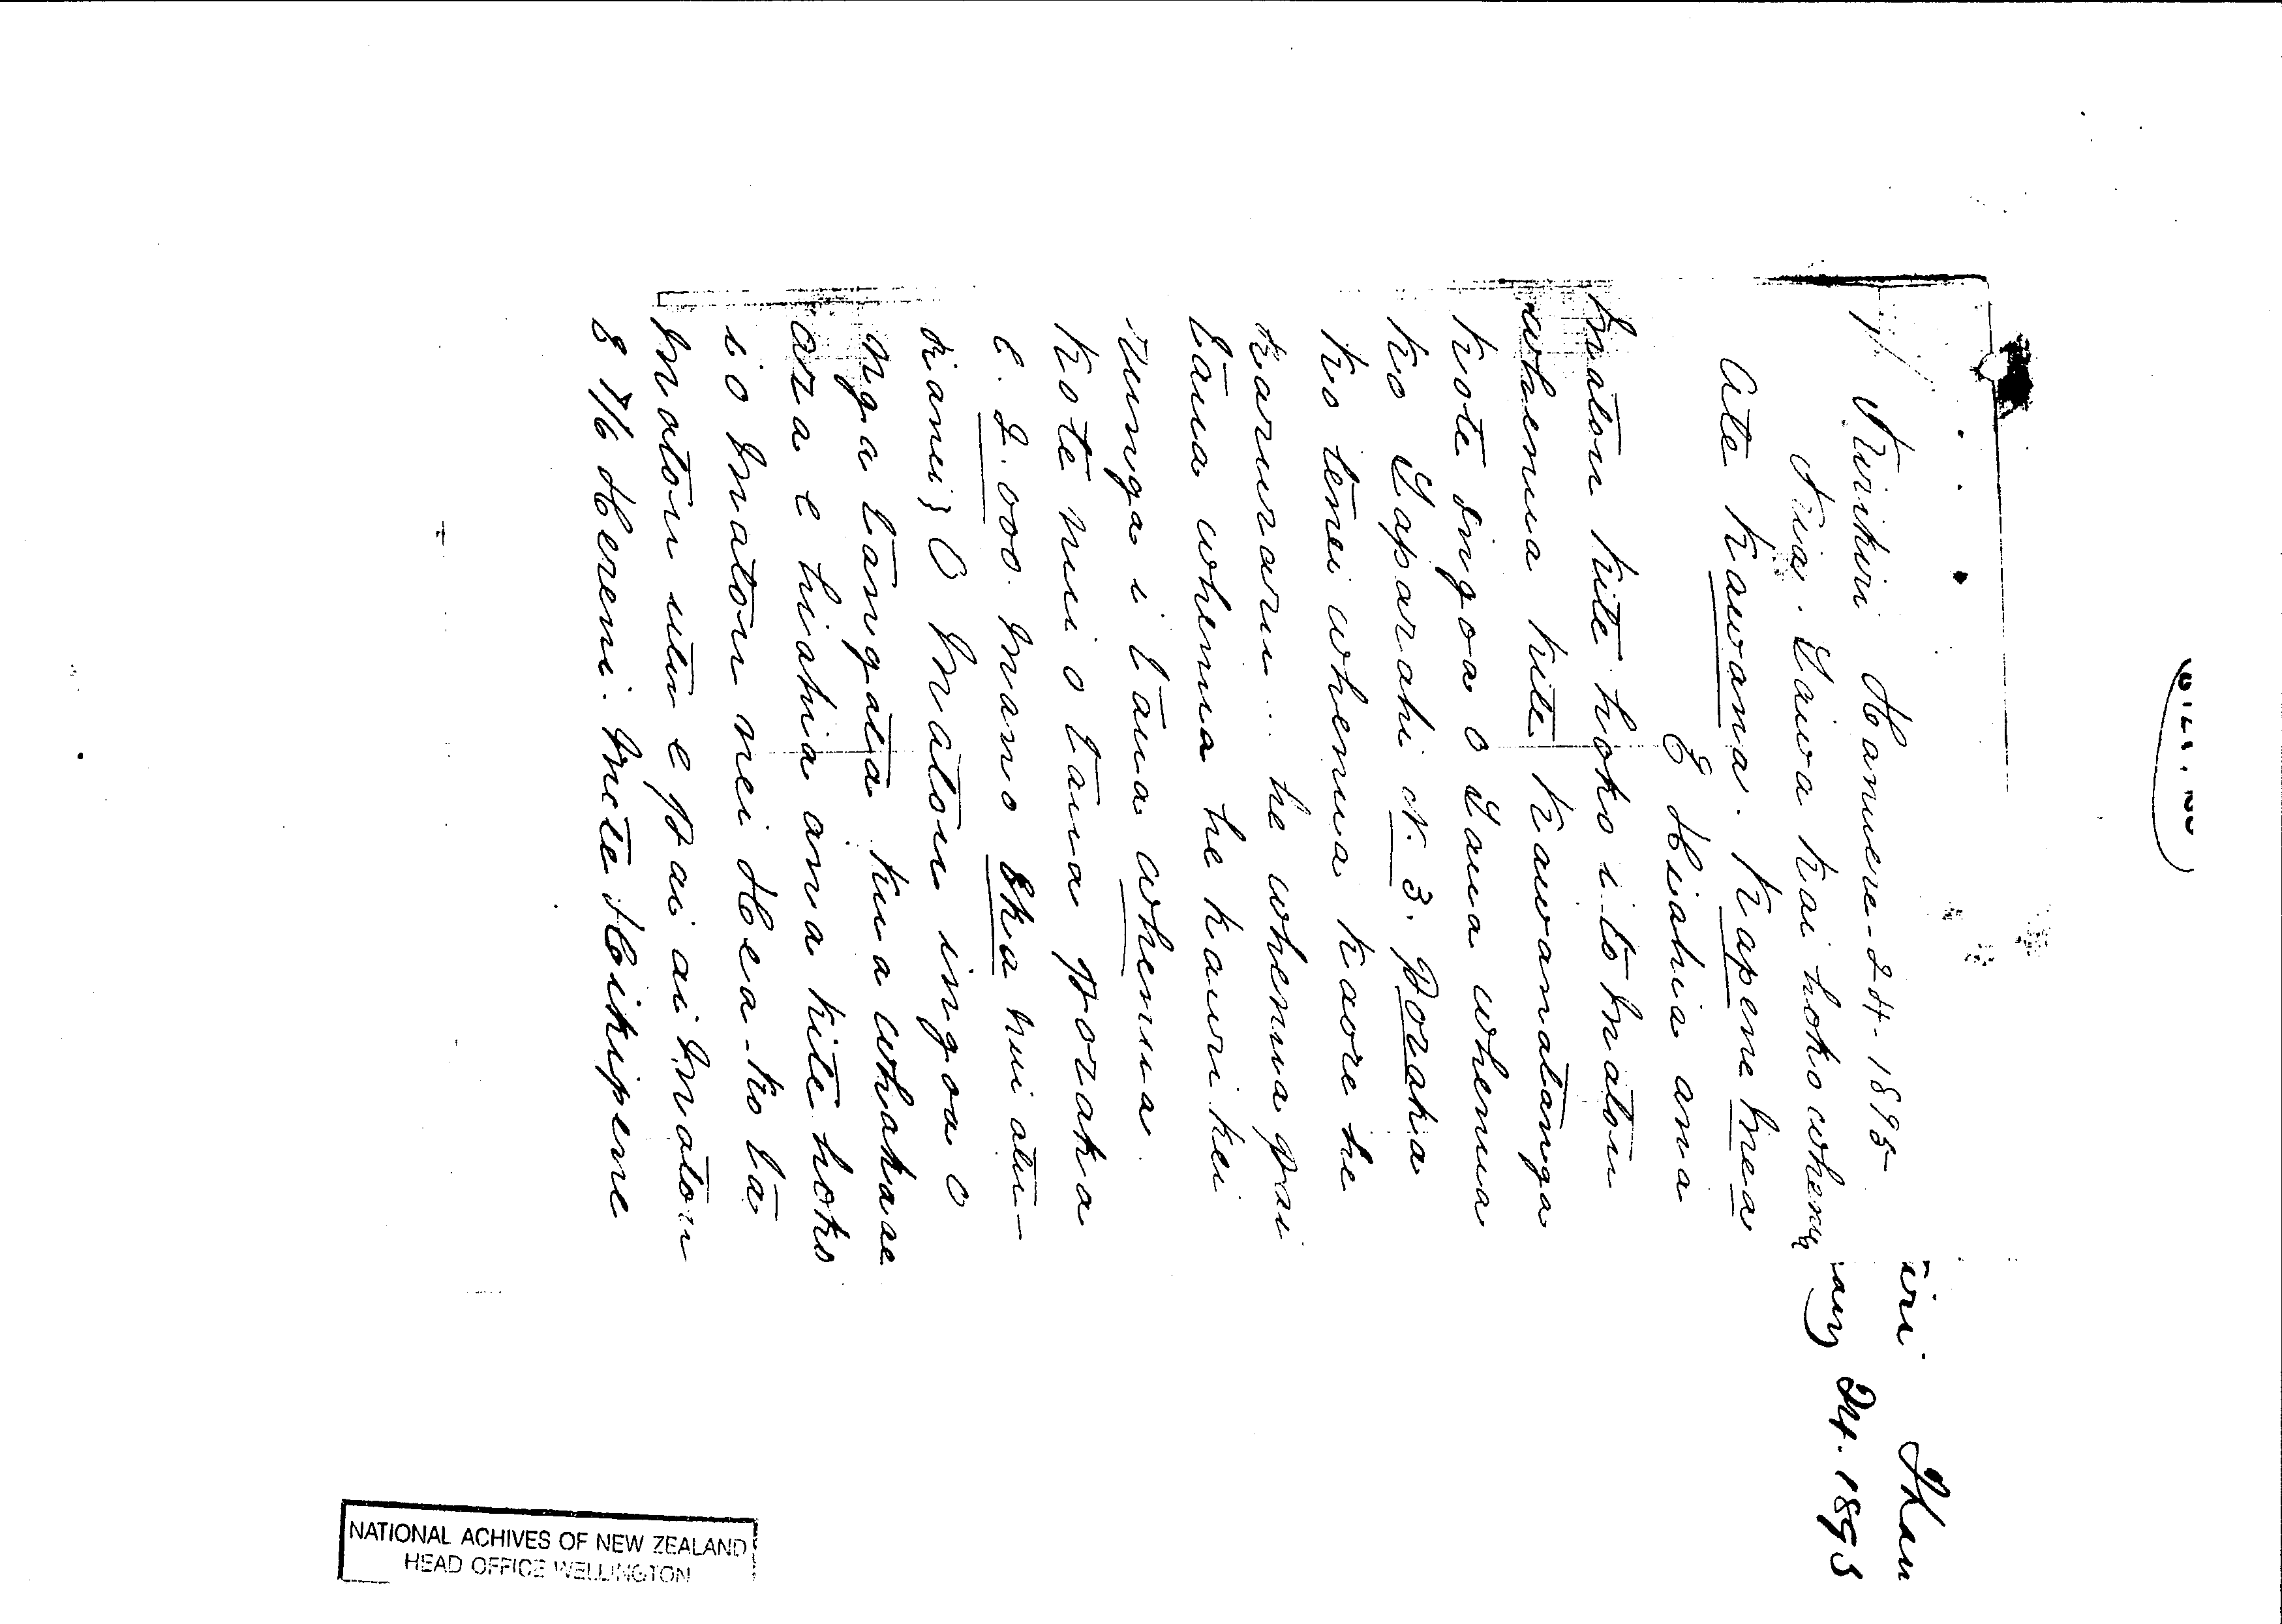 1/ Kirikiri Hanuere - 24 - 1895
Kia. Taiwa kai hoko whenua
Ate Kawana. Kapene Mea
E Hiahia ana
Matou kite hoko i to Matou
whenua kite Kawanatanga
Kote Ingoa o Taua whenua
Ko Taparahi N. 3. Poraka
Ko tenei whenua Kaore he
Raruraru... he whenua pai
taua whenua he kauri kei
runga i taua whenua.
Kote nui o taua poraka
E. 2.000. Mano Eka nui atu-
ranei; O Matou ingoa o
nga tangata kua whakaae
ara e hiahia ana kite hoko
i o Matou nei Hea - Ko ta
Matou utu e pai ai Matou
8 7/6 Hereni. Mete Hikipene
iri Han
24. 1895
NATIONAL ACHIVES OF NEW ZEALAND
HEAD OFFICE WELLINGTON